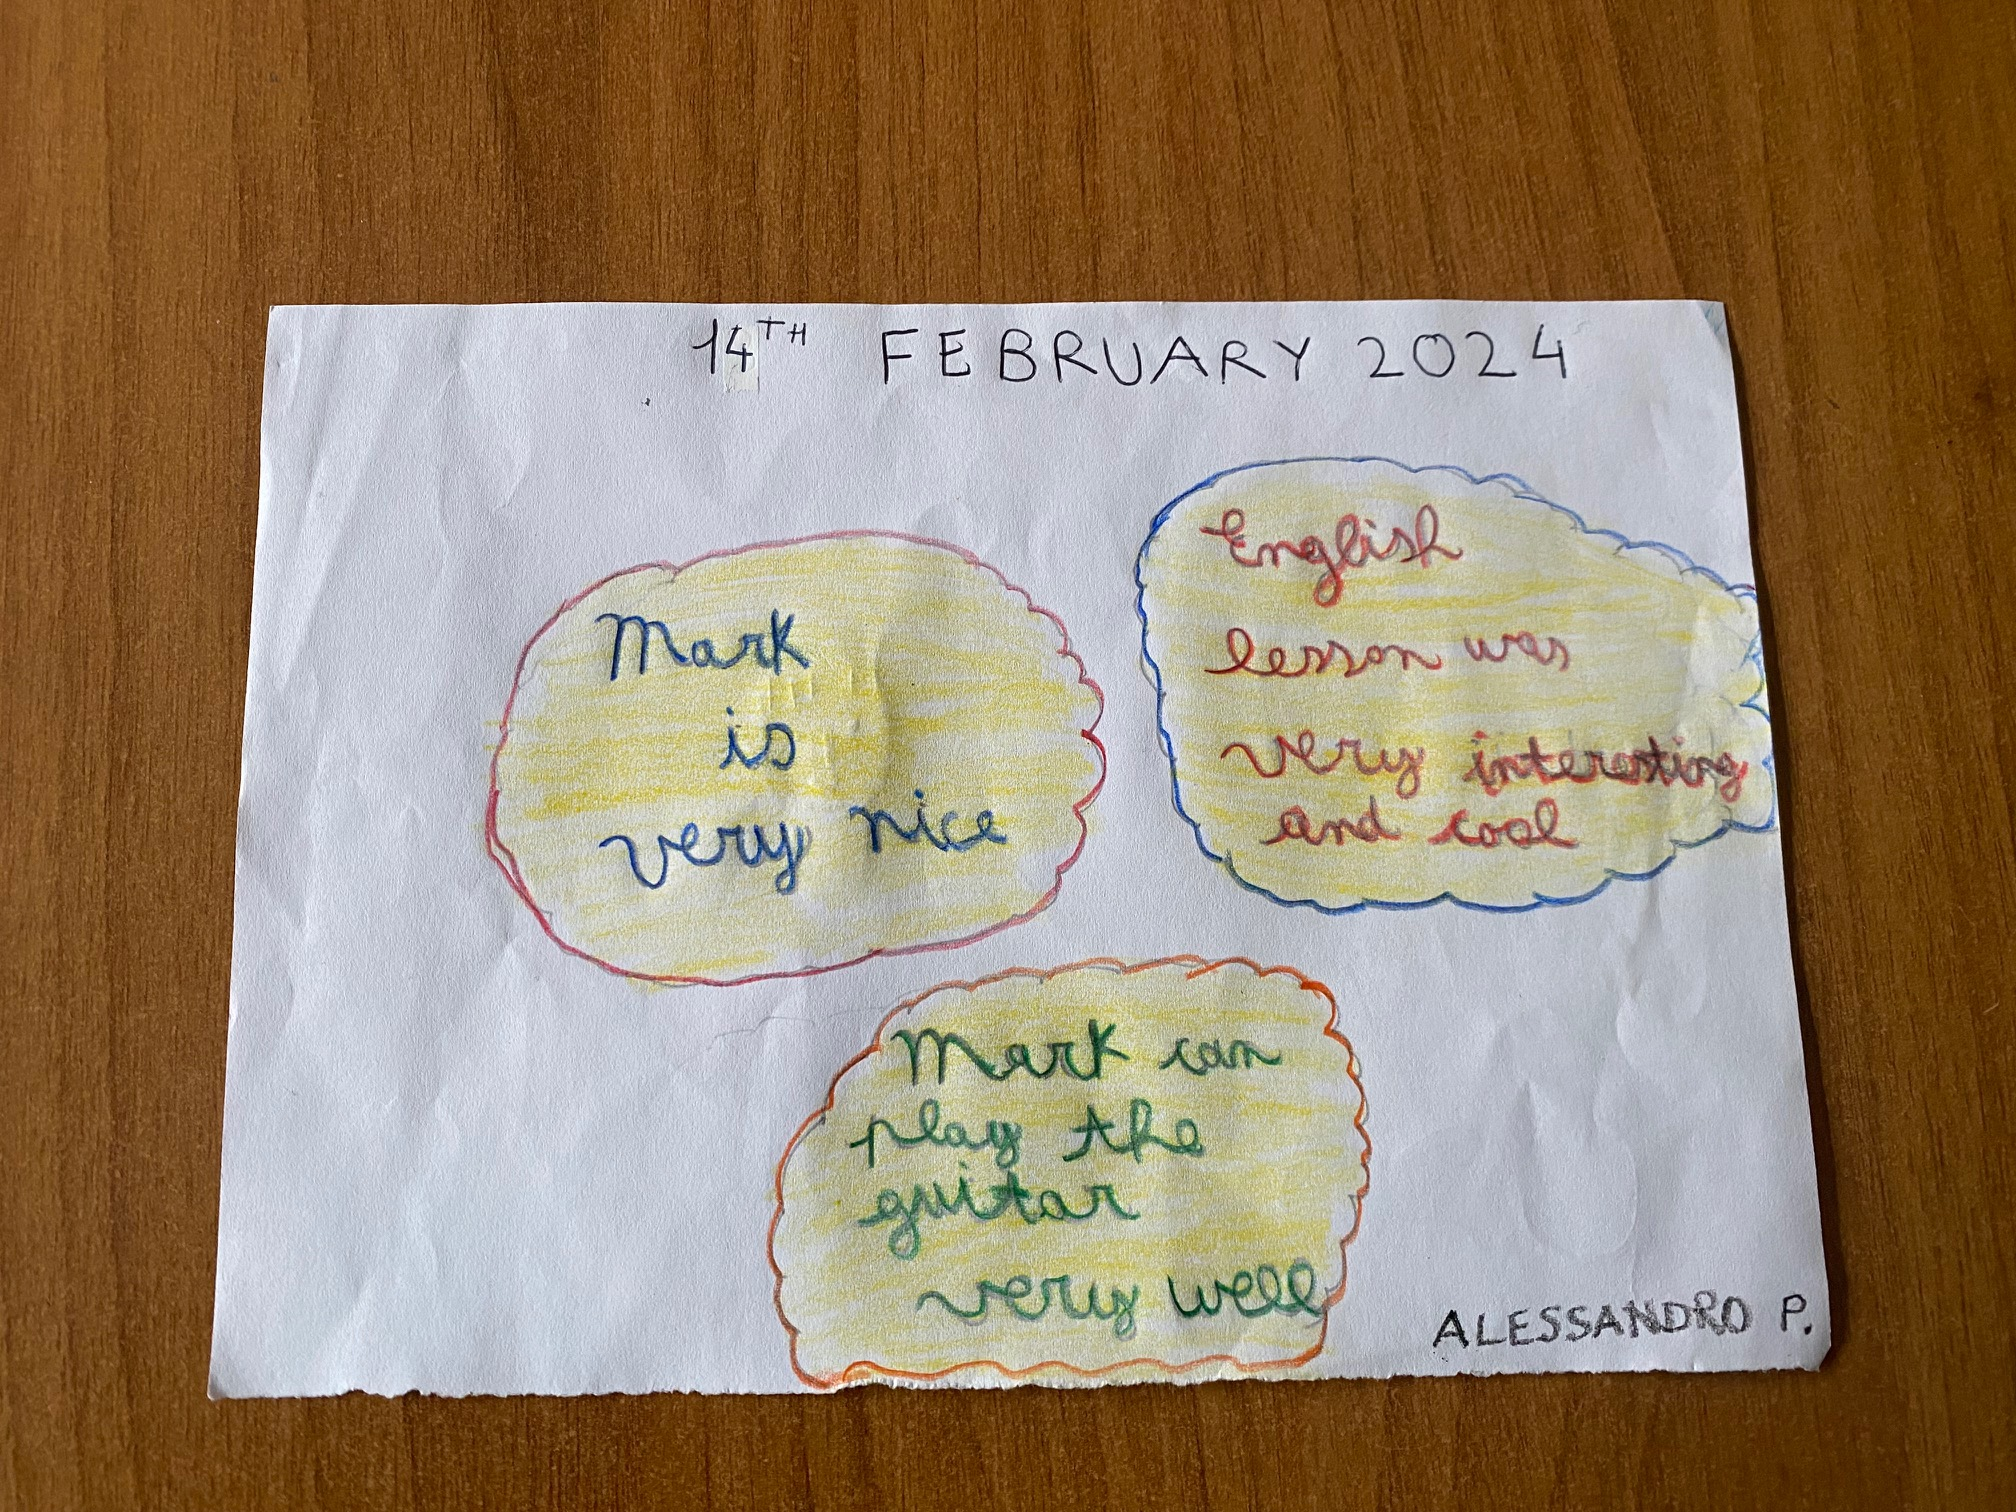 14TH FEBRUARY 2024
Mark
is
very nice
English
lesson was
very interesting
and cool
Mark can
play the
guitar
very well
ALESSANDRO P.